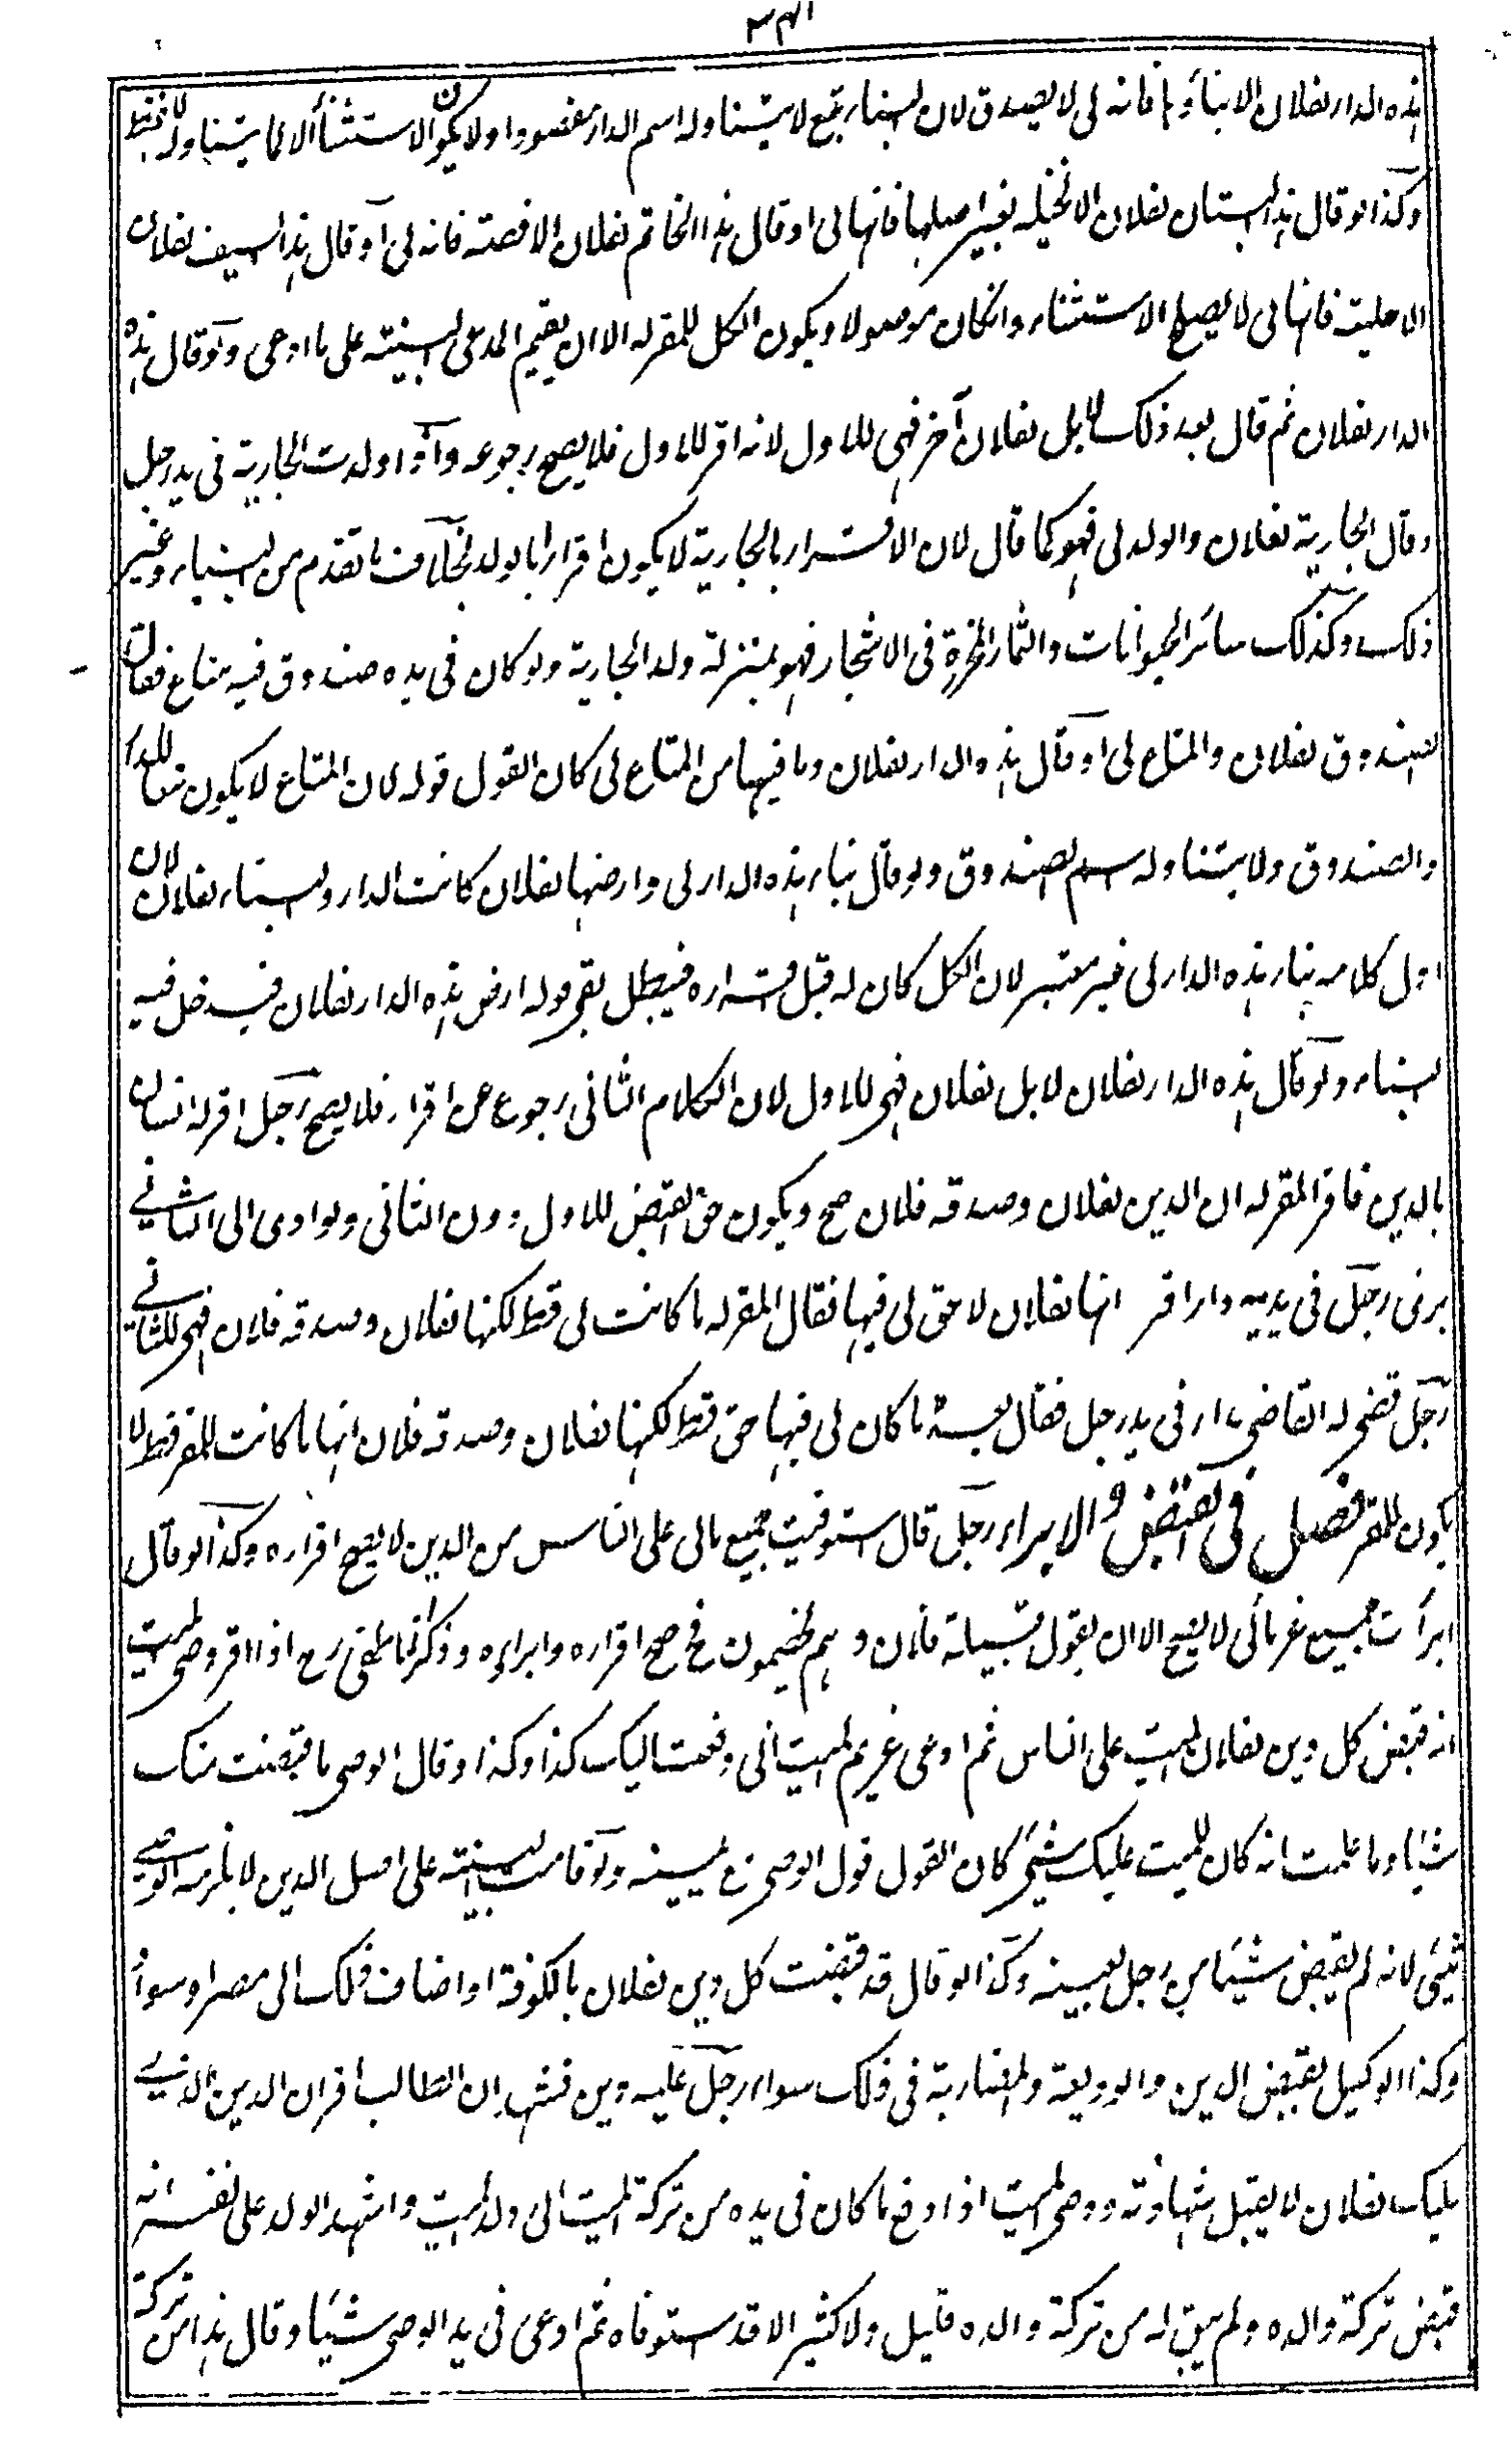 هذه الدار لفلان الا بناؤها فانه لى لا يصدق لان البناء تبع لا يتناوله اسم الدار مقصودا ولا يكون الاستثناء الا لما يتناوله
وكذا لو قال هذا البستان لفلان الا نخيله بغير اصلها فانها لى او قال هذا الخاتم لفلان الا فصه فانه لى او قال هذا السيف لفلان
الا حليته فانها لى لا يصلح الاستثناء وان كان موصولا ويكون الكل للمقر له الا ان يقيم المدعى البينة على ما ادعى ولو قال هذه
الدار لفلان ثم قال بعد ذلك لا بل لفلان آخر فهى للاول لانه اقر للاول فلا يصح رجوعه واذا ولدت الجارية فى يد رجل
وقال الجارية لفلان والولد لى فهو كما قال لان الاقرار بالجارية لا يكون اقرارا بالولد بخلاف ما تقدم من البناء وغير
ذلك وكذلك سائر الحيوانات والثمار المحرزة فى الاشجار فهو بمنزلة ولد الجارية ولو كان فى يده صندوق فيه متاع فقال
الصندوق لفلان والمتاع لى او قال هذه الدار لفلان وما فيها من المتاع لى كان القول قوله لان المتاع لا يكون تبعا للدار
والصندوق ولا يتناوله اسم الصندوق ولو قال بناء هذه الدار لى وارضها لفلان كانت الدار والبناء لفلان لان
اول كلامه بناء هذه الدار لى غير معتبر لان الكل كان له قبل اقراره فيبطل بقى قوله ارض هذه الدار لفلان فيدخل فيه
البناء ولو قال هذه الدار لفلان لا بل لفلان فهى للاول لان الكلام الثانى رجوع عن اقرار فلا يصح رجل اقر له انسان
بالدين فاقر المقر له ان الدين لفلان وصدقه فلان صح ويكون حق القبض للاول دون الثانى ولو ادى الى الثانى
برئ رجل فى يديه دار اقر انها لفلان لا حق لى فيها فقال المقر له ما كانت لى قط لكنها لفلان وصدقه فلان فهى للثانى
رجل قضى له القاضى بدار فى يد رجل فقال بعده ما كان لى فيها حق قط لكنها لفلان وصدقه فلان انها ما كانت للمقر قط لا
يكون للمقر فصل فى القبض والابراء رجل قال استوفيت جميع مالى على الناس من الدين لا يصح اقراره وكذا لو قال
ابرأت جميع غرمائى لا يصح الا ان يقول قبيلة فلان وهم يحصون فح صح اقراره وابراؤه وذكر الناطفى رح اذا اقر وصى الميت
انه قبض كل دين لفلان الميت على الناس ثم ادعى غريم الميت انى دفعت اليك كذا وكذا وقال الوصى ما قبضت منك
شيئا وما علمت انه كان للميت عليك شئ كان القول قول الوصى مع يمينه ولو قامت البينة على اصل الدين لا يلزم الوصى
شئ لانه لم يقبض شيئا من رجل بعينه وكذا لو قال قد قبضت كل دين لفلان بالكوفة او اضاف ذلك الى مصر او سواد
وكذا الوكيل بقبض الدين والوديعة والمضاربة فى ذلك سواء رجل عليه دين فشهد ان الطالب اقر ان الدين الذى
عليك لفلان لا يقبل شهادته ووصى الميت اذا دفع ما كان فى يده من تركة الميت الى ولد الميت واشهد الولد على نفسه انه
قبض تركة والده ولم يبق له من تركة والده قليل ولا كثير الا قد استوفاه ثم ادعى فى يد الوصى شيئا وقال هذا من تركة